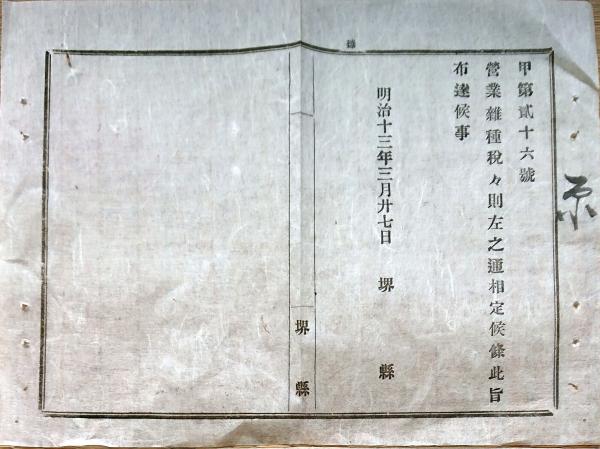 甲第貳十六號
營業雜種稅々則左之通相定候條此旨
布達候事
明治十三年三月廿七日　堺縣
堺縣